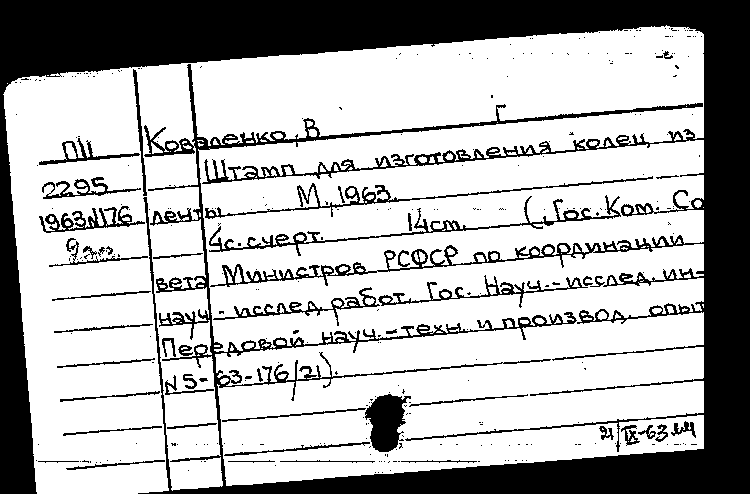 П11 Коваленко, В Г
Штамп для изготовления колец из
2295
1963N176 ленты. М., 1963.
9 экз. 4с. счерт. 14см. (Гос. Ком. Со
вета Министров РСФСР по координации
науч.-исслед. работ. Гос. Науч.-исслед. ин-
Передовой науч.-техн. и производ. опыт
N5-63-176/21).
21/IX-63